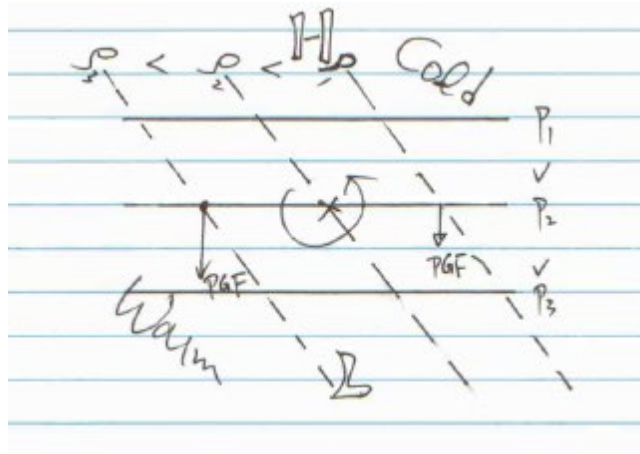 H
ρ₃ < ρ₂ < ρ₁ Cold
P₁
∨
P₂
PGF PGF
∨
P₃
Warm
L